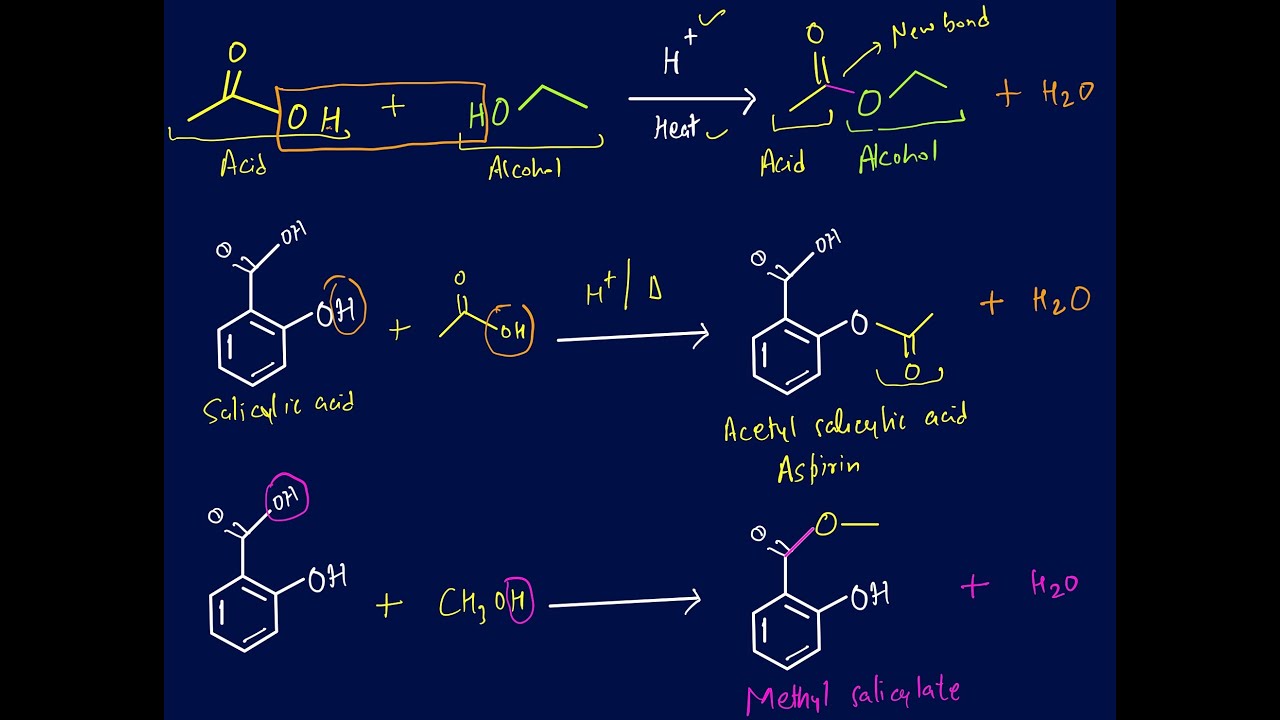 O
OH + HO
H+
Heat
O
O
New bond
+ H2O
Acid
Alcohol
Acid
Alcohol
O OH
OH
+
O
OH
H+/Δ
O OH
O
O
+ H2O
Salicylic acid
Acetyl salicylic acid
Aspirin
O OH
OH
+ CH3OH
O O
OH
+ H2O
Methyl salicylate